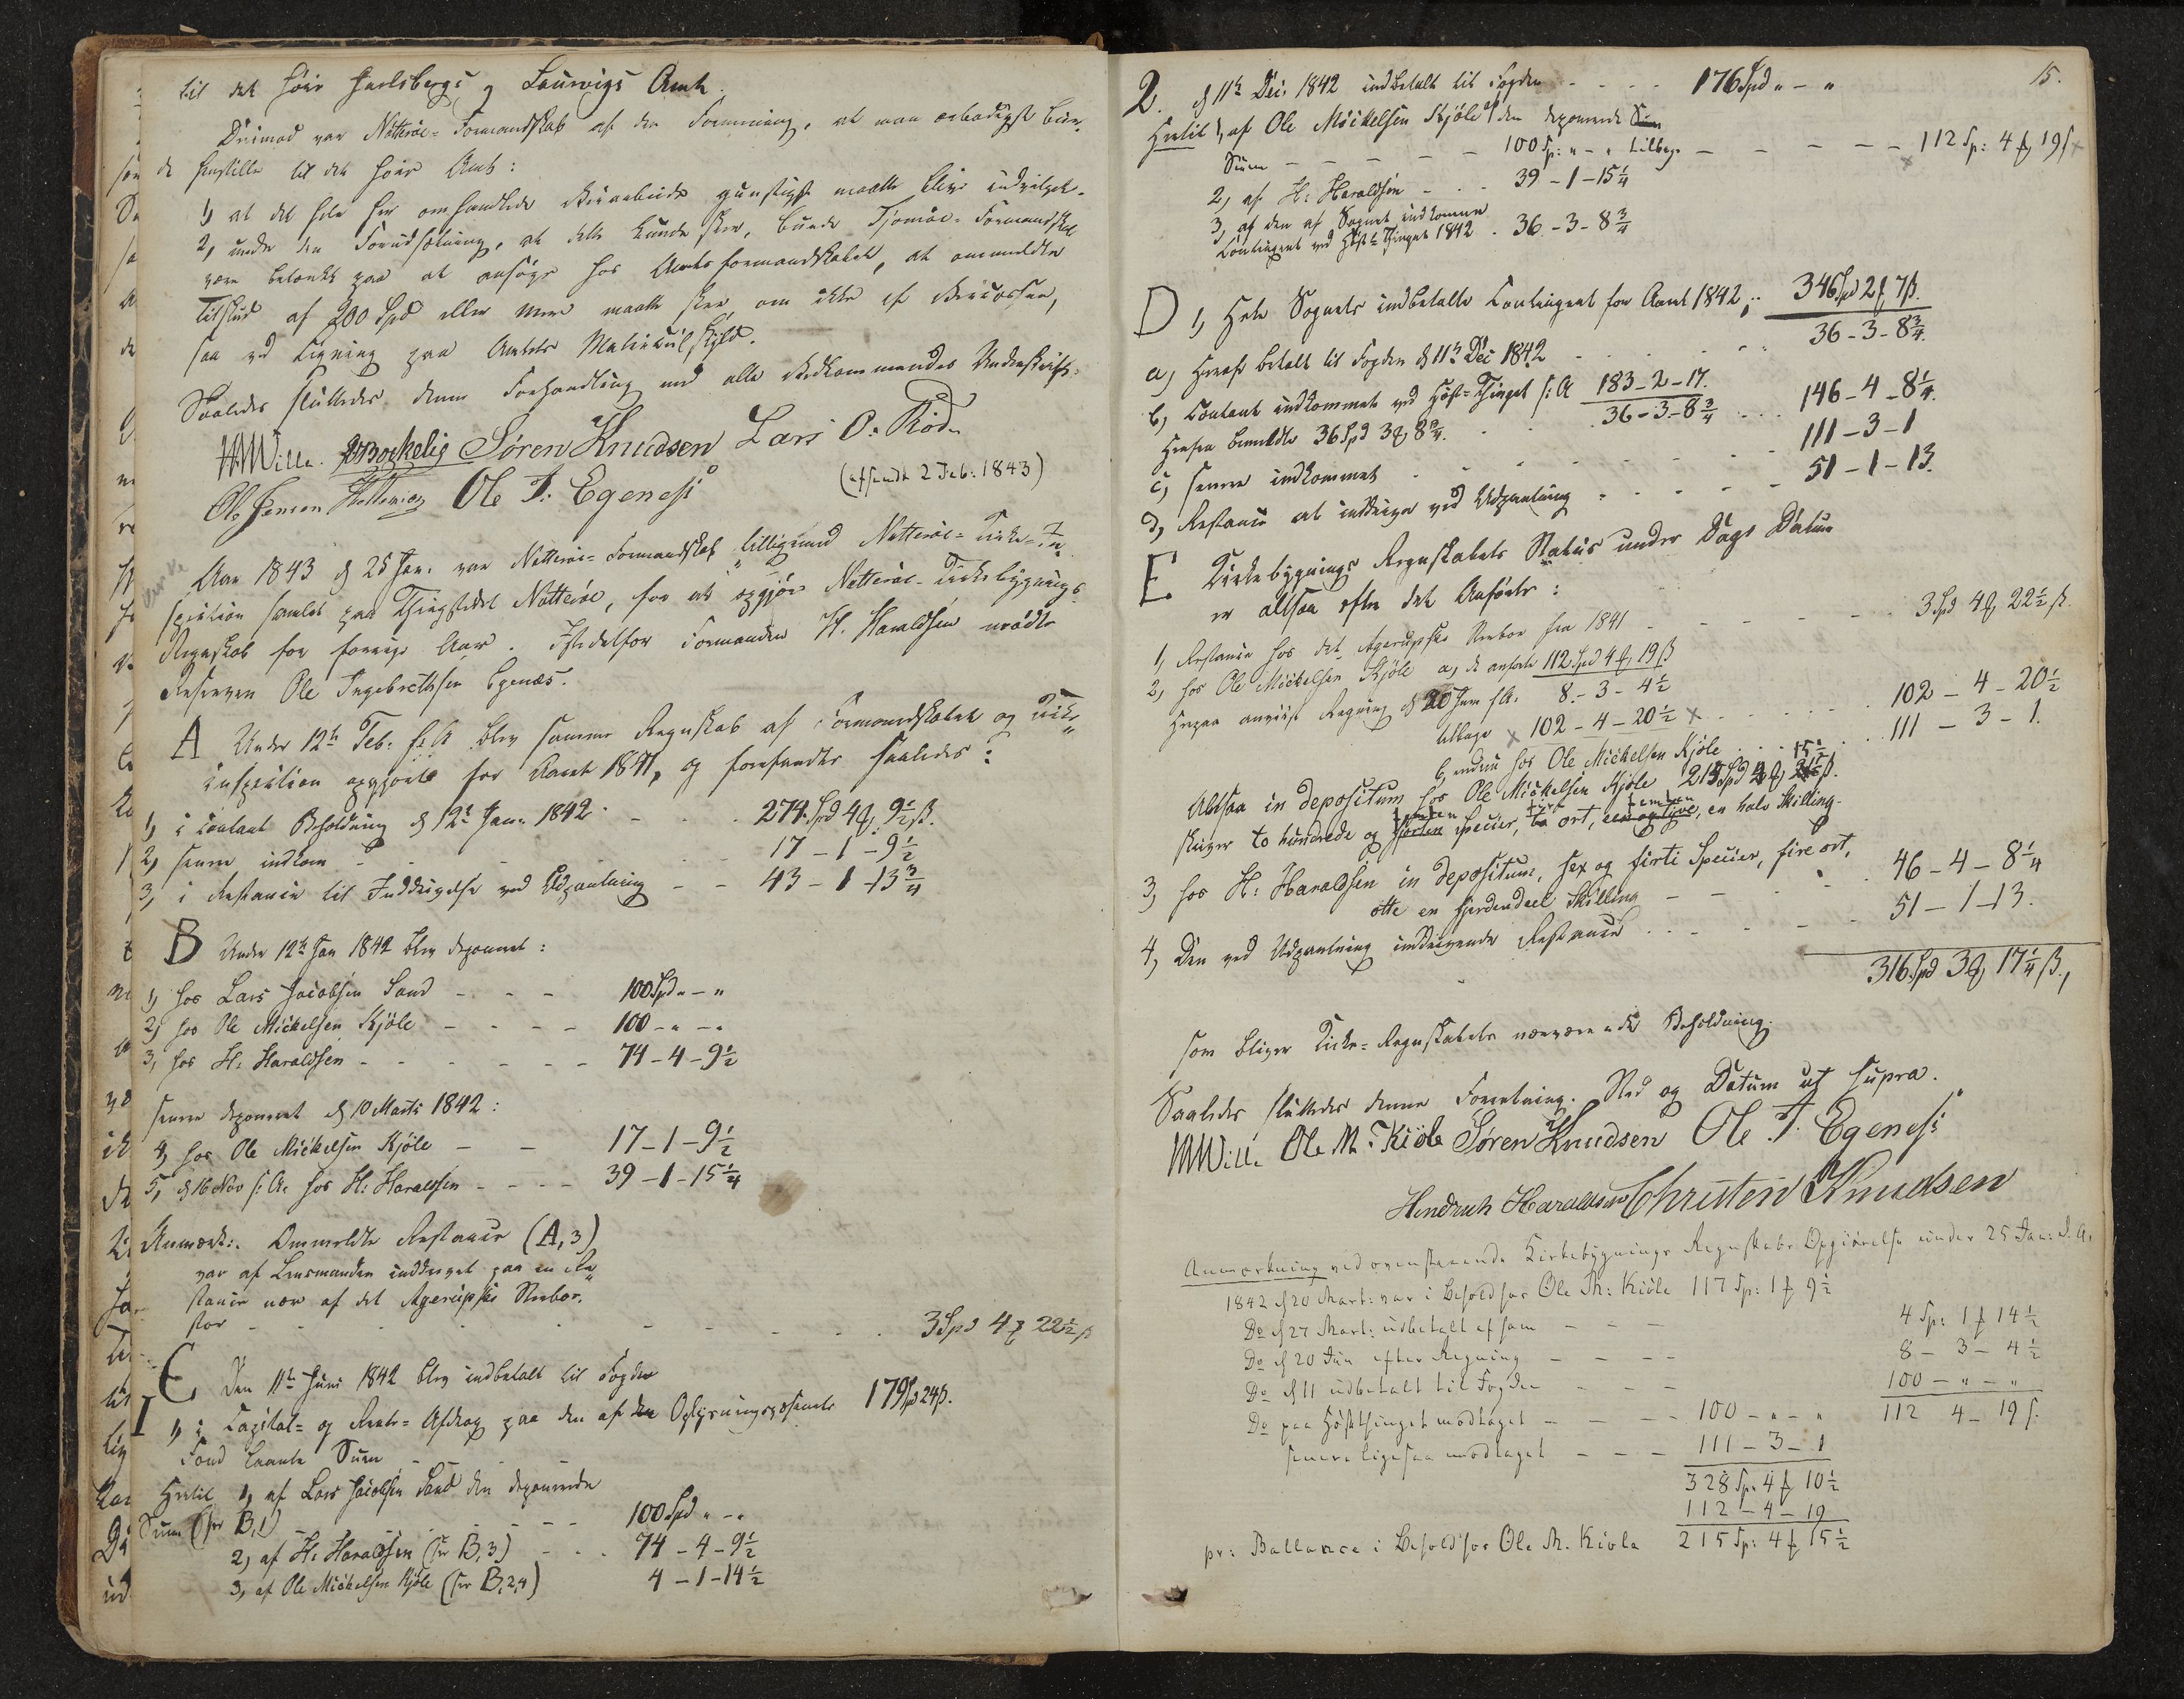 til det høie Jarlsbergs og Laurvigs Amt.
Derimod var Nøtterøe-Formandskab af den Formening, at man ærbødigst bur-
de henstille til det høie Amt:
1, at det hele her omhandlede Veiarbeide gunstigst maatte blive indvilget.
2, under den Forudsætning, at dette kunde skee, burde Tjømøe-Formandskab
være betænkt paa at ansøge hos Amtsformandskabet, at anmeldte
Tilskud af 200 Spd eller mere maatte skee om ikke af Veicassen,
saa ved Ligning paa Amtets Matriculskyld.
Saaledes sluttedes denne Forhandling med alle Vedkommendes Underskrift.
HWille. Bockelie Søren Knudsen Lars O. Rød.
Ole Jensen Ole I. Egenesi
(afsendt 2 Feb: 1843)
Aar 1843 d 25 Jan. var Nøtterøe-Formandskab tilligemed Nøtterøe-Kirke-In-
spection samlet paa Thingstedet Nøtterøe, for at opgjøre Nøtterøe-Kirkebygnings
Regnskab for forrige Aar. Istedetfor Formanden H. Haraldsen mødte
Reserven Ole Ingebrethsen Egenæs.
A Under 12te Feb: f: A blev samme Regnskab af Formandskabet og Kirke-
inspection opgjort for Aaret 1841, og forefandtes saaledes:
1, i contant Beholdning d 12te Jan. 1842 - 274 Spd 4 9½ ß.
2, senere indkom - 17 - 1 - 9½
3, i Restance til Inddrivelse ved Udpantning - - 43 - 1 - 13¾
B Under 12te Jan 1842 blev deponeret:
1, hos Lars Jacobsen Sand - - - 100 Spd " - "
2, hos Ole Mickelsen Kjøle - - - 100 - " - "
3, hos H. Haraldsen - - - 74 - 4 - 9½
senere deponeret d 10 Marts 1842:
4, hos Ole Mickelsen Kjøle - - 17 - 1 - 9½
5, d 16 Nov s: A. hos H: Haraldsen - - - 39 - 1 - 15¼
Anmærk:. Ommeldte Restance (A,3)
var af Lensmanden inddrevet paa en Re-
stance nær af det Agerupske Sterboe,
stor - - - 3 Spd 4 22½ ß
C Den 11te Juni 1842 blev indbetalt til Fogden
1, i Capital- og Rente-Afdrag paa den af Oplysningsvæsenets 179 Spd 24 ß.
Fond laante Sum
Hertil 1, af Lars Jacobsen Sand den deponerede
Sum (see B,1) - - - 100 Spd " - "
2, af H. Haraldsen (see B,3) - - 74 - 4 - 9½
3, af Ole Mickelsen Kjøle (see B,2,4) 4 - 1 - 14½
15.
2. d 11te Dec: 1842 indbetalt til Fogden - - - 176 Spd " - "
Hertil 1, af Ole Mickelsen Kjöle af den deponerede
Sum - - - 100 Sp: " - " tilbage - - - 112 Sp: 4 19 ß
2, af H: Haraldsen - - 39 - 1 - 15¼
3, af den af Sognet indkomne
Contingent ved Høst-Thinget 1842 . 36 - 3 - 8¾
D 1, Hele Sognets indbetalte Contingent for Aaret 1842, 346 Spd 2 7 ß.
a, Heraf betalt til Fogden d 11te Dec 1842 - - - 36 - 3 - 8¾.
b, Contant indkommet ved Høst-Thinget s: A 183 - 2 - 17.
Herfra bemeldte 36 Spd 3 8¾. 36 - 3 - 8¾ - - - 146 - 4 - 8¼.
c, senere indkommet - - - 111 - 3 - 1
d, Restance at inddrive ved Udpantning - - - 51 - 1 - 13.
E Kirkebygnings Regnskabets Status under Dags Datum
er altsaa efter det Anførte:
1, Restance hos det Agerupske Sterboe fra 1841 - - - 3 Spd 4 22½ ß.
2, hos Ole Mickelsen Kjöle a, de anførte 112 Spd 4 19 ß
Herpaa anviist Regning d 20 Jun s A. 8 - 3 - 4½
tilbage 102 - 4 - 20½ - - - 102 - 4 - 20½
b, endnu hos Ole Mickelsen Kjöle - - - 111 - 3 - 1.
Altsaa in depositum hos Ole Mickelsen Kjöle 215 Spd 4 15½ ß.
skriver to hundrede og femten Specier, fire ort, femten, en halv Skilling.
3, hos H: Haraldsen in depositum, sex og firti Specier, fire ort,
otte en fjerdendeel Skilling - - 46 - 4 - 8¼
4, Den ved Udpantning inddrivende Restance - - - 51 - 1 - 13.
316 Spd 3 17¼ ß.,
som bliver Kirke-Regnskabets nærværende Beholdning.
Saaledes sluttedes denne Forretning. Sted og Datum ut supra.
HWille Ole M. Kiøle Søren Knudsen Ole I. Egenesi
Hendrich Haraldsen Christen Knudsen
Anmerkning ved ovenstaaende Kirkebygnings Regnskabs Opgiørelse under 25 Jan: d. A.
1842 d 20 Mart: var i Behold hos Ole M: Kiöle 117 Sp: 1 9½
Do d 27 Mart: udbetalt af ham - - - 4 Sp: 1 14½
Do d 20 Jun efter Regning - - - 8 - 3 - 4½
Do d 11 udbetalt til Fogden - - - 100 - " - "
Do paa Høstthinget modtaget - - - 100 - " - " 112 4 - 19 ß.
senere ligesaa modtaget - - - 111 - 3 - 1
328 Sp: 4 10½
112 - 4 - 19
pr: Ballance i Behold hos Ole M. Kiöle 215 Sp: 4 15½